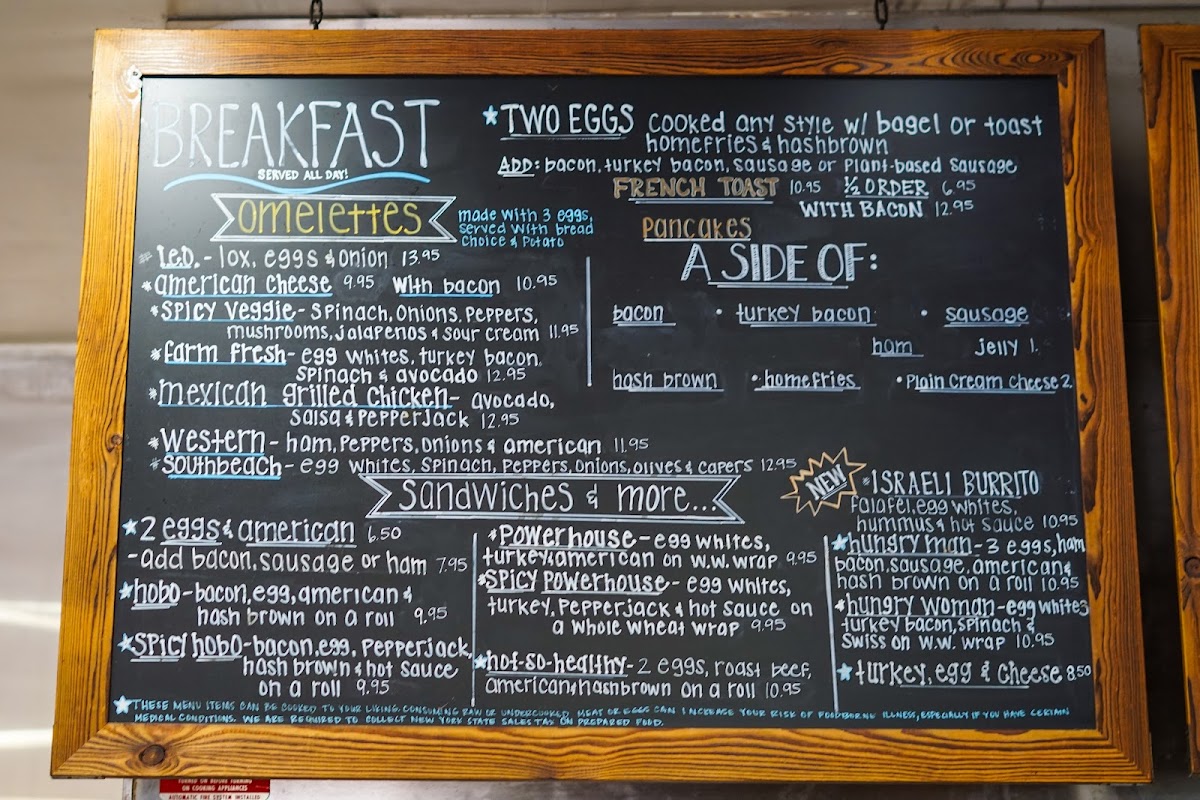 BREAKFAST
SERVED ALL DAY!
omelettes
made with 3 eggs,
served with bread
choice & potato
l.e.o. - lox, eggs & onion 13.95
*american cheese 9.95 with bacon 10.95
*spicy veggie - spinach, onions, peppers,
mushrooms, jalapenos & sour cream 11.95
*farm fresh - egg whites, turkey bacon,
spinach & avocado 12.95
*mexican grilled chicken - avocado,
salsa & pepperjack 12.95
*western - ham, peppers, onions & american 11.95
*southbeach - egg whites, spinach, peppers, onions, olives & capers 12.95
*TWO EGGS cooked any style w/ bagel or toast
homefries & hashbrown
ADD: bacon, turkey bacon, sausage or plant-based sausage
FRENCH TOAST 10.95 ½ ORDER 6.95
WITH BACON 12.95
pancakes
A SIDE OF:
bacon • turkey bacon • sausage
ham jelly 1.
hash brown • homefries • plain cream cheese 2.
sandwiches & more...
*2 eggs & american 6.50
- add bacon, sausage or ham 7.95
*hobo - bacon, egg, american &
hash brown on a roll 9.95
*spicy hobo - bacon, egg, pepperjack,
hash brown & hot sauce
on a roll 9.95
*powerhouse - egg whites,
turkey, american on w.w. wrap 9.95
*spicy powerhouse - egg whites,
turkey, pepperjack & hot sauce on
a whole wheat wrap 9.95
*not-so-healthy - 2 eggs, roast beef,
american, hashbrown on a roll 10.95
NEW *ISRAELI BURRITO
falafel, egg whites,
hummus & hot sauce 10.95
*hungry man - 3 eggs, ham
bacon, sausage, american &
hash brown on a roll 10.95
*hungry woman - egg whites
turkey bacon, spinach &
swiss on w.w. wrap 10.95
*turkey, egg & cheese 8.50
*THESE MENU ITEMS CAN BE COOKED TO YOUR LIKING. CONSUMING RAW OR UNDERCOOKED MEAT OR EGGS CAN INCREASE YOUR RISK OF FOODBORNE ILLNESS, ESPECIALLY IF YOU HAVE CERTAIN
MEDICAL CONDITIONS. WE ARE REQUIRED TO COLLECT NEW YORK STATE SALES TAX ON PREPARED FOOD.
TURNED ON BEFORE TURNING
ON COOKING APPLIANCES
AUTOMATIC FIRE SYSTEM INSTALLED